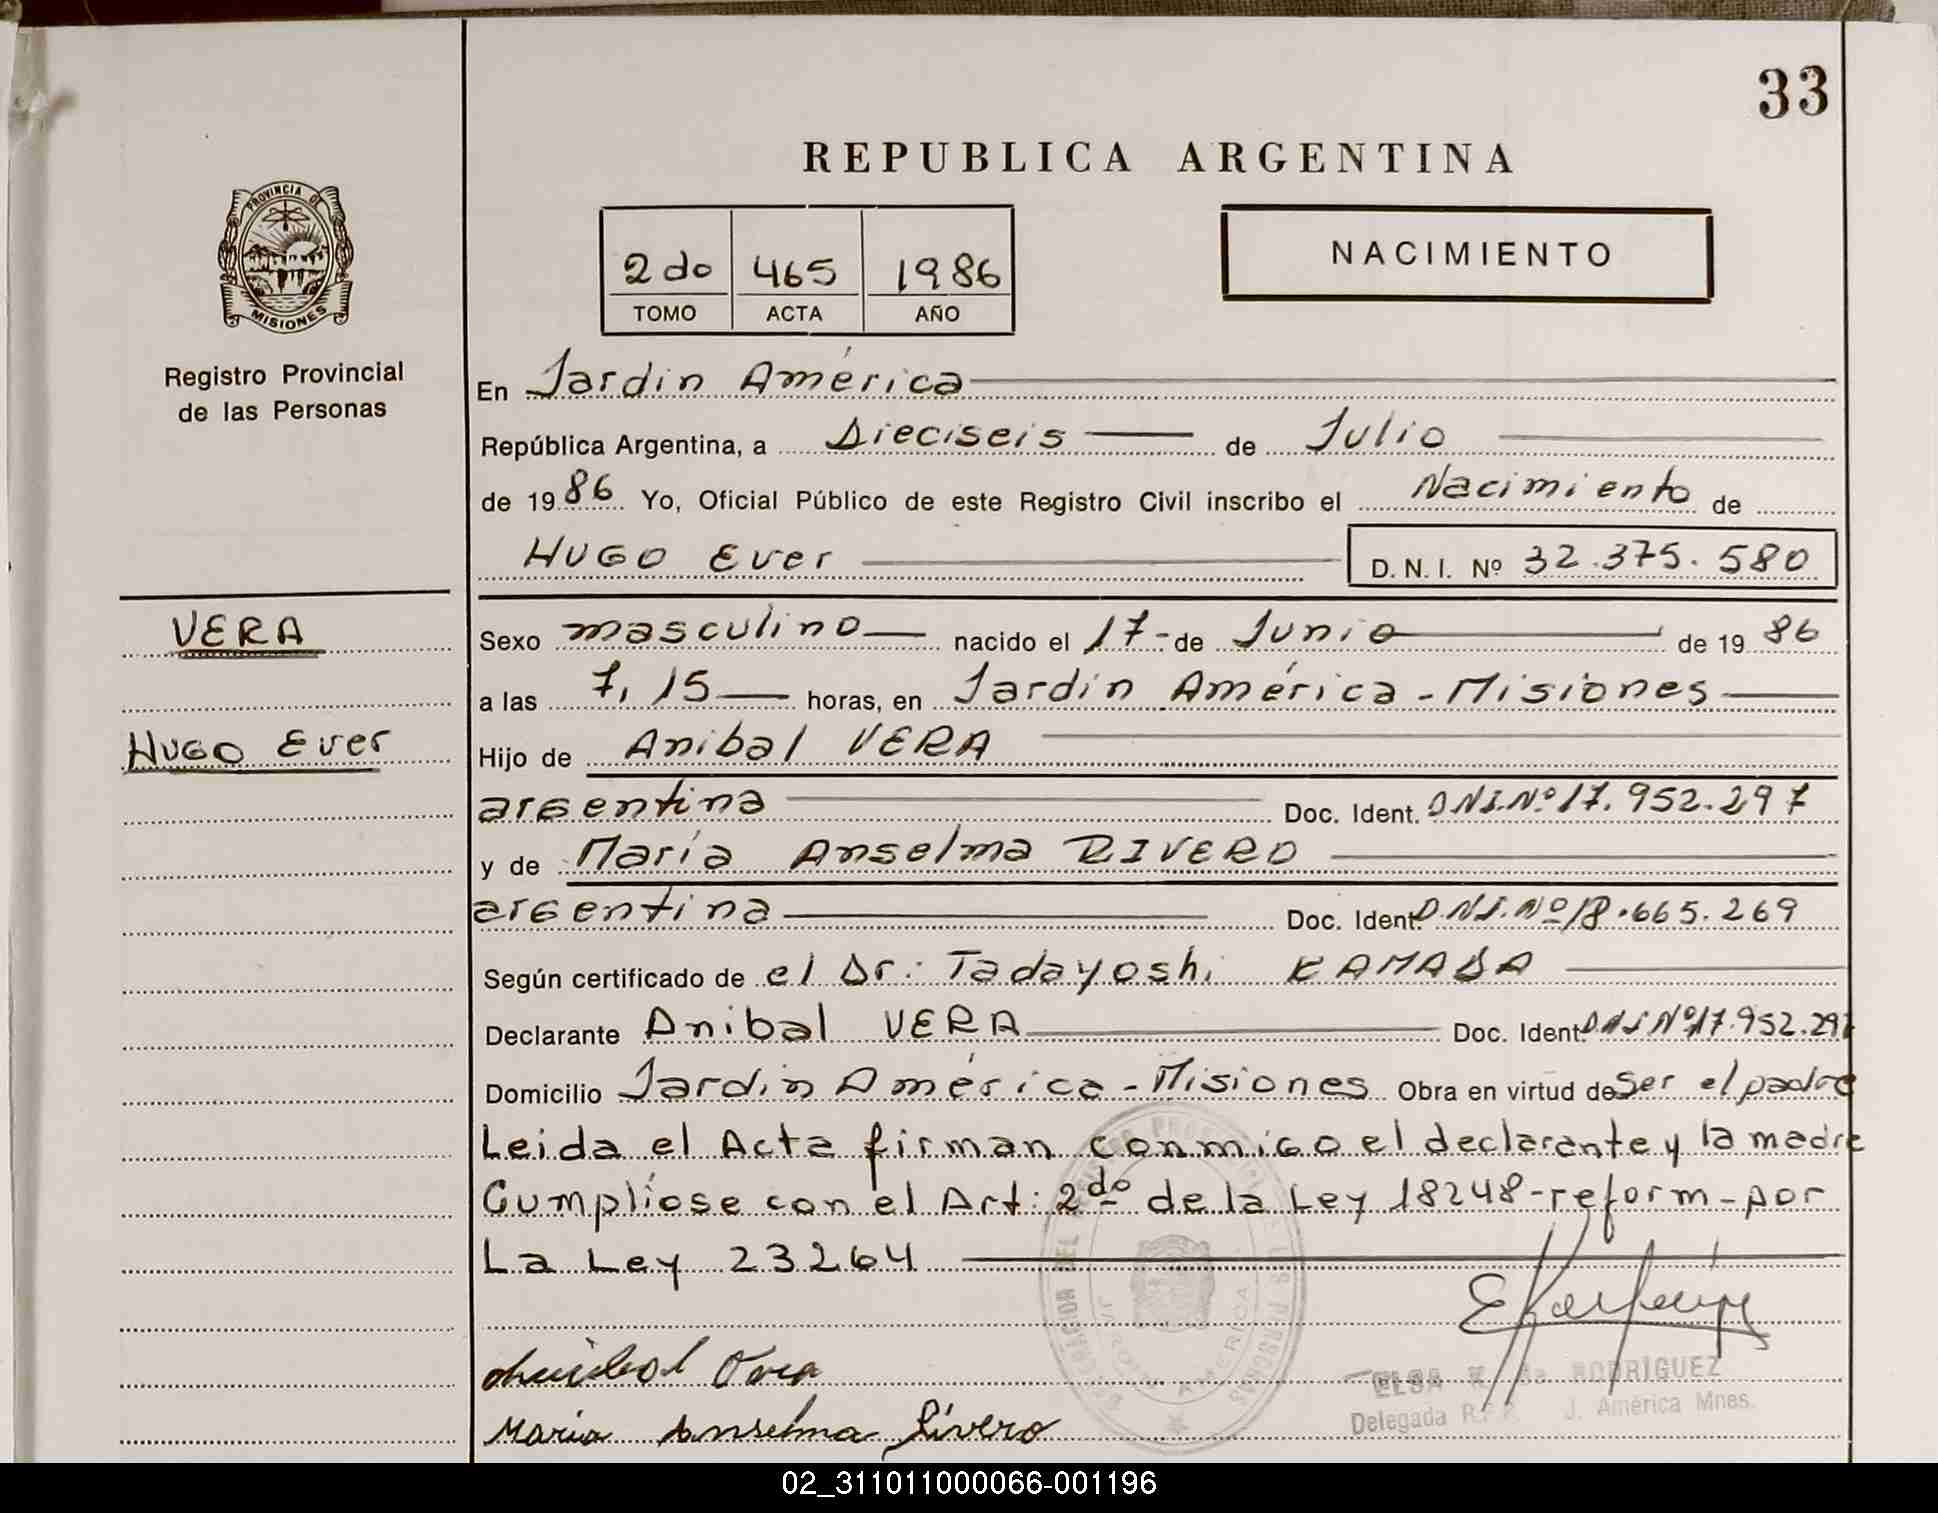 33
REPUBLICA ARGENTINA
PROVINCIA DE
MISIONES
Registro Provincial
de las Personas
2do 465 1986
TOMO ACTA AÑO
NACIMIENTO
En Jardin América
República Argentina, a Dieciseis de Julio
de 1986 Yo, Oficial Público de este Registro Civil inscribo el Nacimiento de
HUGO Ever D. N. I. Nº 32.375.580
VERA
HUGO Ever
Sexo masculino nacido el 17-de Junio de 1986
a las 7,15 horas, en Jardin América - Misiones
Hijo de Anibal VERA
argentina Doc. Ident. DNI.Nº 17.952.297
y de María Anselma RIVERO
argentina Doc. Ident. D.N.I.Nº 18.665.269
Según certificado de el Dr: Tadayoshi KAMADA
Declarante Anibal VERA Doc. Ident. DNI Nº 17.952.297
Domicilio Jardin América - Misiones Obra en virtud de Ser el padre
Leida el Acta firman conmigo el declarante y la madre
Cumpliose con el Art: 2do de la Ley 18248-reform-por
La Ley 23264
Anibal Vera
Maria Anselma Rivero
ELSA K. de RODRIGUEZ
Delegada R.P.P. J. América Mnes.
02_311011000066-001196